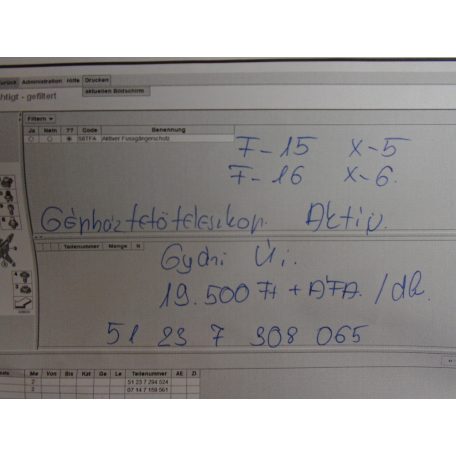 Zurück Administration Hilfe Drucken
aktuellen Bildschirm
htigt - gefiltert
Filtern
Ja Nein ?? Code Benennung
S8TFA Aktiver Fussgängerschutz
F-15 X-5
F-16 X-6.
Géphóztető teleszkóp. Aktív.
Teilenummer Menge
Gyári Új.
19.500 Ft + ÁFA. / db.
51 23 7 308 065
Me Von Bis Kat Ge Le Teilenummer AE Zi
2 51 23 7 294 524
2 07 14 7 159 561